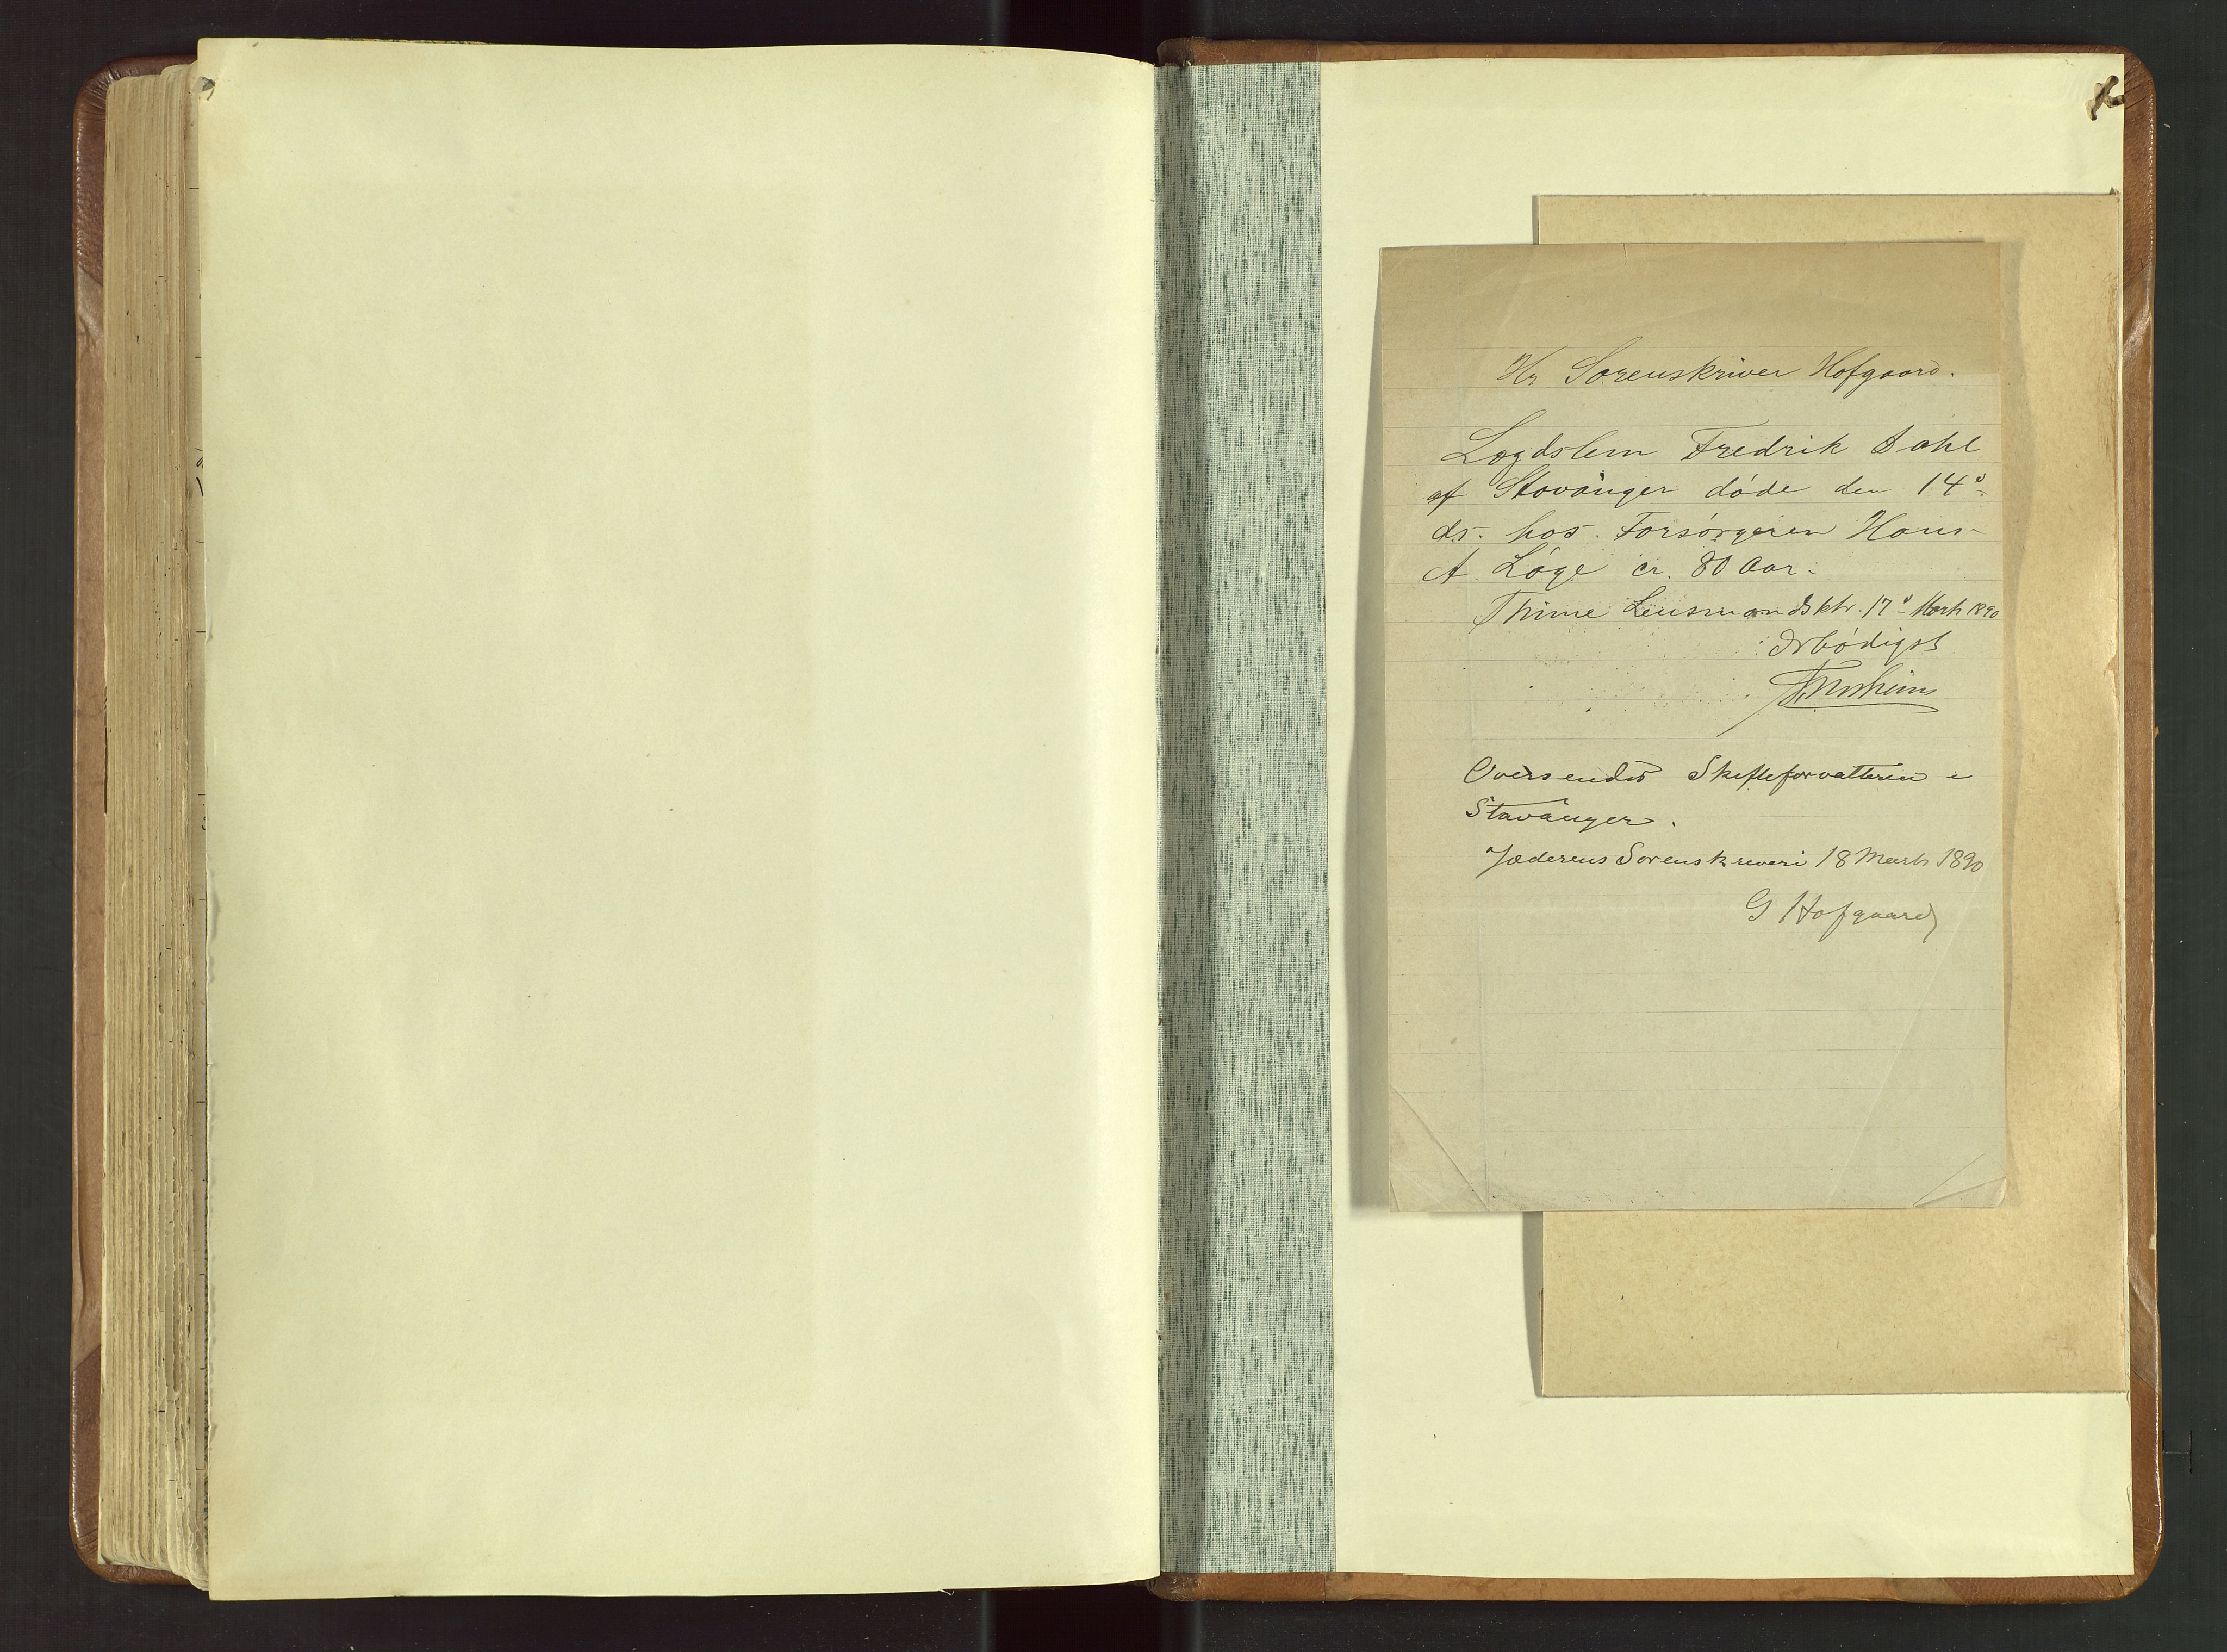 Hr Sorenskriver Hofgaard.
Lægdslem Fredrik Dahl
af Stavanger døde den 14de
ds. hos Forsørgeren Hans
A. Løge cr. 80 Aar.
Thime Lensmandsktr. 17de Marts 1890
Ærbødigst
Oversendes Skifteforvalteren i
Stavanger.
Jæderens Sorenskriveri 18 Marts 1890
G Hofgaard